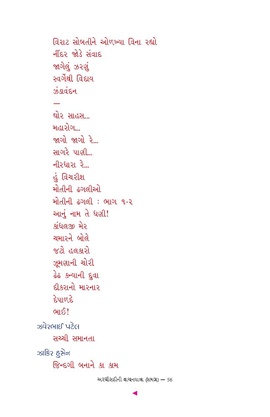 વિરાટ સોબતીને ઓળખ્યા વિના રહ્યો
નીંદર જોડે સંવાદ
જાગેલું ઝરણું
સ્વર્ગેથી વિદાય
ઝંડાવંદન
—
ઘોર સાહસ...
મહારોગ...
જાગો જાગો રે...
સાગરે પાણી...
નીરધારા રે...
હું વિચરીશ
મોતીની ઢગલીઓ
મોતીની ઢગલી : ભાગ ૧-૨
આનું નામ તે ધણી!
કાંધલજી મેર
ચમારને બોલે
જટો હલકારો
ઝૂમણાની ચોરી
ઢેઢ કન્યાની દુવા
દીકરાનો મારનાર
દેપાળદે
ભાઈ!
ઝવેરભાઈ પટેલ
સચ્ચી સમાનતા
ઝાકિર હુસેન
જિન્દગી બનાને કા કામ
અરધીસદીની વાચનયાત્રા